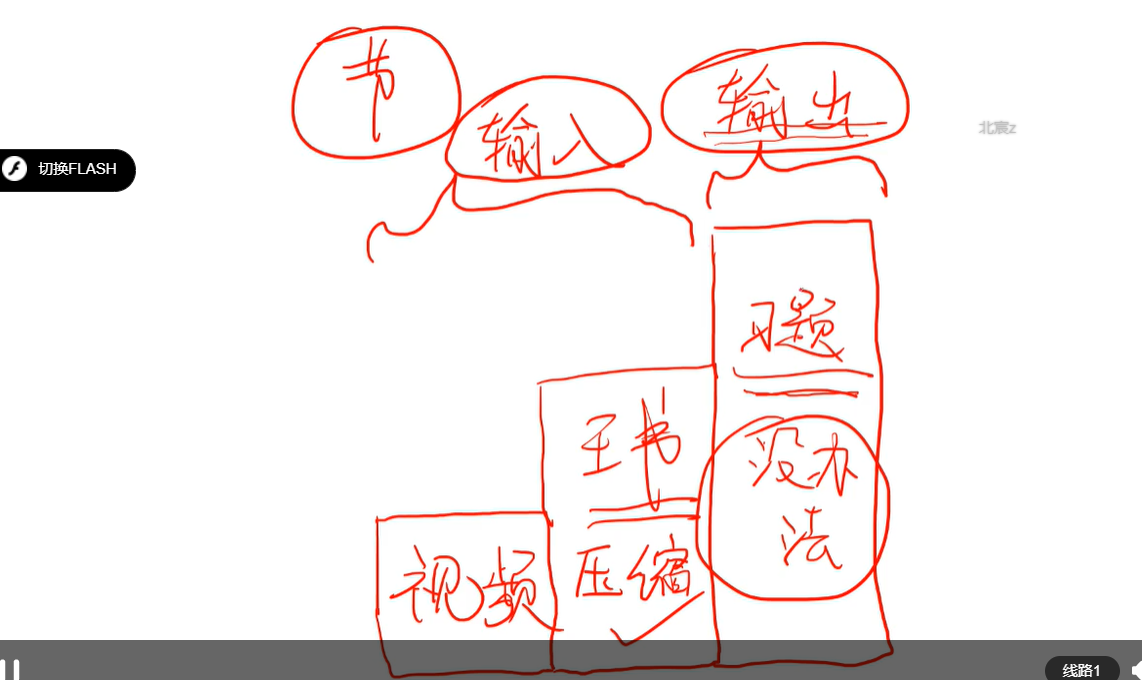 节
输入
输出
北宸z
切换FLASH
习题
王书
没办
法
视频
压缩
线路1